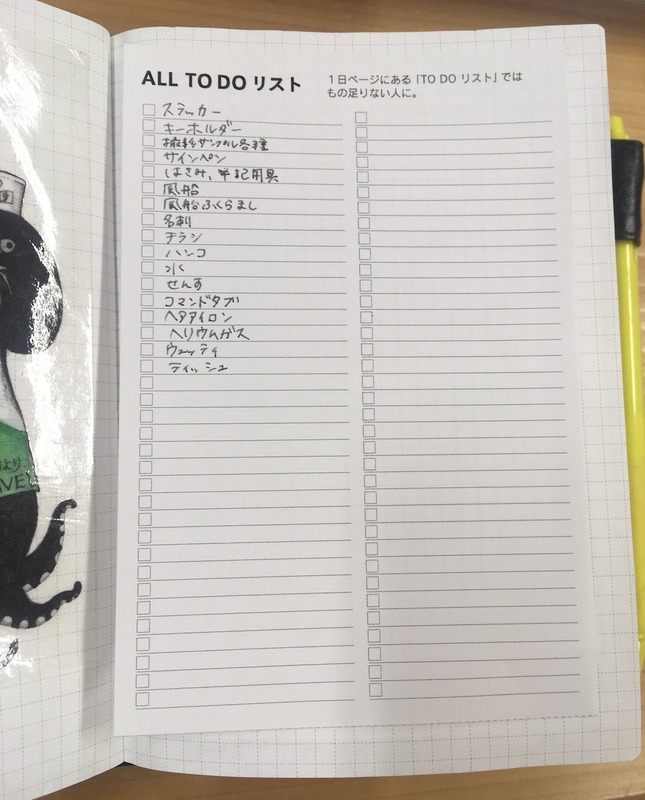 ALL TO DO リスト
1日ページにある「TO DO リスト」では
もの足りない人に。
ステッカー
キーホルダー
サンプル各種
サインペン
はさみ、筆記用具
風船
風船ふくらまし
名刺
チラシ
ハンコ
水
せんす
コマンドタブ
ヘアアイロン
ヘリウムガス
ウェッティ
ティッシュ
より
VE